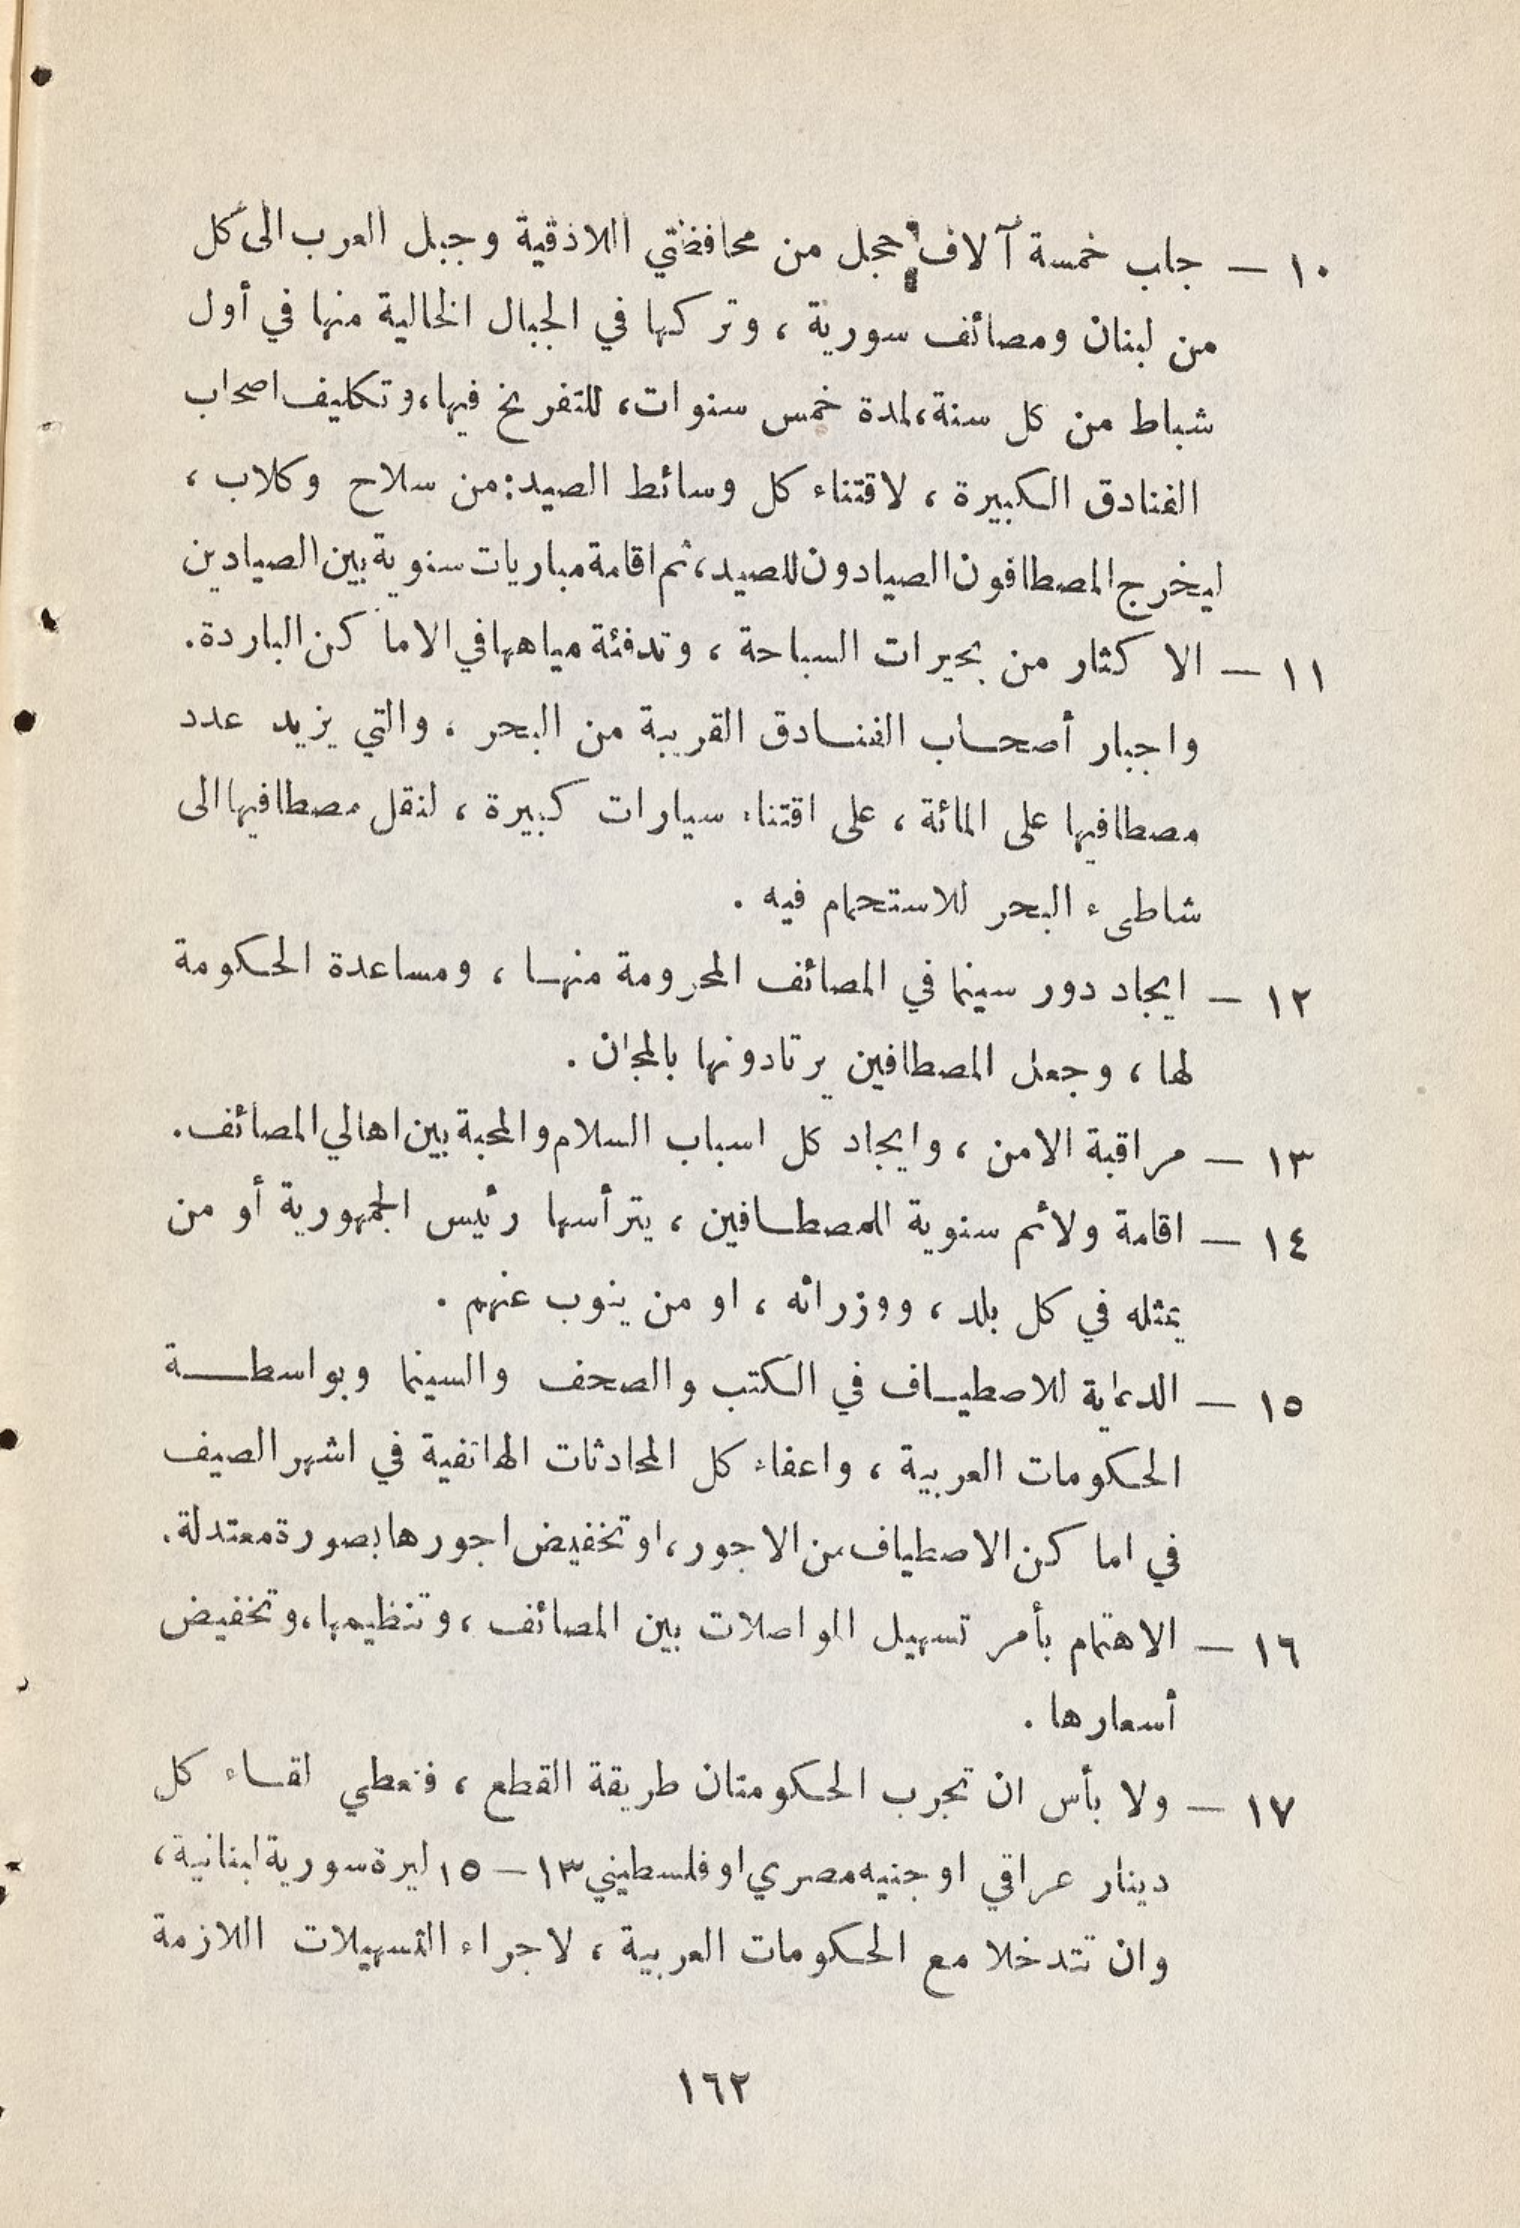 ١٠ — جلب خمسة آلاف حجل من محافظتي اللاذقية وجبل العرب الى كل
من لبنان ومصائف سورية ، وتركها في الجبال الخالية منها في أول
شباط من كل سنة، لمدة خمس سنوات، للتفريخ فيها، وتكليف اصحاب
الفنادق الكبيرة ، لاقتناء كل وسائط الصيد: من سلاح وكلاب ،
ليخرج المصطافون الصيادون للصيد، ثم اقامة مباريات سنوية بين الصيادين
١١ — الاكثار من بحيرات السباحة ، وتدفئة مياهها في الاماكن الباردة.
واجبار أصحاب الفنادق القريبة من البحر ، والتي يزيد عدد
مصطافيها على المائة ، على اقتناء سيارات كبيرة ، لنقل مصطافيها الى
شاطىء البحر للاستحمام فيه .
١٢ — ايجاد دور سينما في المصائف المحرومة منها ، ومساعدة الحكومة
لها ، وجعل المصطافين يرتادونها بالمجان .
١٣ — مراقبة الامن ، وايجاد كل اسباب السلام والمحبة بين اهالي المصائف.
١٤ — اقامة ولائم سنوية للمصطافين ، يترأسها رئيس الجمهورية أو من
يمثله في كل بلد ، ووزرائه ، او من ينوب عنهم .
١٥ — الدعاية للاصطياف في الكتب والصحف والسينما وبواسطة
الحكومات العربية ، واعفاء كل المحادثات الهاتفية في اشهر الصيف
في اماكن الاصطياف من الاجور، او تخفيض اجورها بصورة معتدلة.
١٦ — الاهتمام بأمر تسهيل المواصلات بين المصائف ، وتنظيمها، وتخفيض
أسعارها .
١٧ — ولا بأس ان تجرب الحكومتان طريقة القطع ، فتعطي لقاء كل
دينار عراقي او جنيه مصري او فلسطيني ١٣ — ١٥ ليرة سورية لبنانية،
وان تتدخلا مع الحكومات العربية ، لاجراء التسهيلات اللازمة
١٦٢